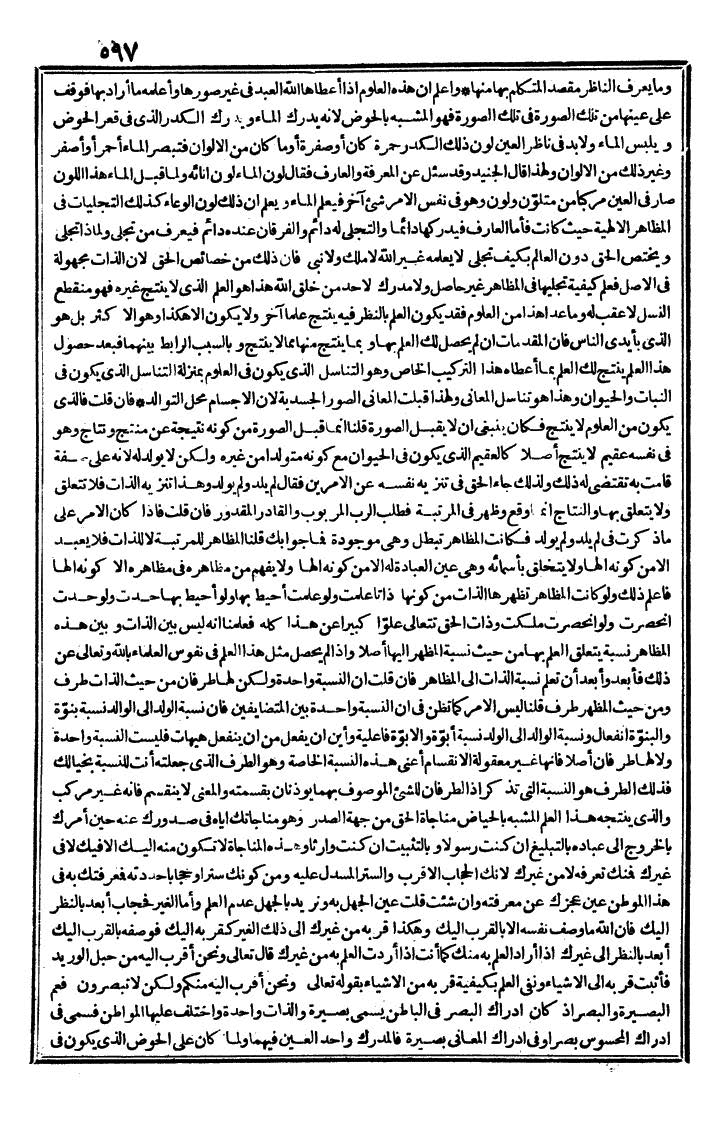 ٥٩٧
وما يعرف الناظر مقصد المتكلم بها منها * واعلم ان هذه العلوم اذا أعطاها الله العبد فى غير صورها وأعلمه ما أراد بها فوقف
على عينها من تلك الصورة فى تلك الصورة فهو المشبه بالحوض لانه يدرك الماء ويدرك الكدر الذى فى قعر الحوض
ويلبس الماء ولابد فى ناظر العين لون ذلك الكدر حمرة كان أو صفرة أو ما كان من الالوان فتبصر الماء أحمر أو أصفر
وغير ذلك من الالوان ولهذا قال الجنيد وقد سئل عن المعرفة والعارف فقال لون الماء لون انائه ولما قبل الماء هذا اللون
صار فى العين مركبا من متلوّن ولون وهو فى نفس الامر شئ آخر فيعلم الماء ويعلم ان ذلك لون الوعاء كذلك التجليات فى
المظاهر الالهية حيث كانت فأما العارف فيدركها دائما والتجلى له دائم والفرقان عنده دائم فيعرف من تجلى ولماذا تجلى
ويختص الحق دون العالم بكيف تجلى لا يعلمه غير الله لا ملك ولا نبى فان ذلك من خصائص الحق لان الذات مجهولة
فى الاصل فعلم كيفية تجليها فى المظاهر غير حاصل ولا مدرك لاحد من خلق الله هذا هو العلم الذى لا ينتج غيره فهو منقطع
النسل لا عقب له وما عدا هذا من العلوم فقد يكون العلم بالنظر فيه ينتج علما آخر ولا يكون الا هكذا وهو الا كثر بل هو
الذى بأيدى الناس فان المقدمات ان لم يحصل لك العلم بها وبما ينتج منها مما لا ينتج وبالسبب الرابط بينهما فبعد حصول
هذا العلم ينتج لك العلم بما أعطاه هذا التركيب الخاص وهو التناسل الذى يكون فى العلوم بمنزلة التناسل الذى يكون فى
النبات والحيوان وهذا هو تناسل المعانى ولهذا قبلت المعانى الصور الجسدية لان الاجسام محل التوالد * فان قلت فالذى
يكون من العلوم لا ينتج فكان ينبغى ان لا يقبل الصورة قلنا انما قبل الصورة من كونه نتيجة عن منتج ونتاج وهو
فى نفسه عقيم لا ينتج أصلا كالعقيم الذى يكون فى الحيوان مع كونه متولدا من غيره ولكن لا يولد له لانه على صفة
قامت به تقتضى له ذلك ولذلك جاء الحق فى تنزيه نفسه عن الامرين فقال لم يلد ولم يولد وهذا تنزيه الذات فلا تتعلق
ولا يتعلق بها والنتاج انما وقع وظهر فى المرتبة فطلب الرب المربوب والقادر المقدور فان قلت فاذا كان الامر على
ماذكرت فى لم يلد ولم يولد فكانت المظاهر تبطل وهى موجودة فما جوابك قلنا المظاهر للمرتبة لا للذات فلا يعبد
الا من كونه الها ولا يتخلق بأسمائه وهى عين العبادة له الا من كونه الها ولا يفهم من مظاهره فى مظاهره الا كونه الها
فاعلم ذلك ولو كانت المظاهر تظهرها الذات من كونها ذاتا علمت ولو علمت أحيط بها ولو أحيط بها حدت ولو حدت
انحصرت ولو انحصرت ملكت وذات الحق تتعالى علوّا كبيرا عن هذا كله فعلمنا انه ليس بين الذات وبين هذه
المظاهر نسبة يتعلق العلم بها من حيث نسبة المظهر اليها أصلا واذا لم يحصل مثل هذا العلم فى نفوس العلماء بالله وتعالى عن
ذلك فأبعد وأبعد أن تعلم نسبة الذات الى المظاهر فان قلت ان النسبة واحدة ولكن لها طرفان من حيث الذات طرف
ومن حيث المظهر طرف قلنا ليس الامر كما تظن فى ان النسبة واحدة بين المتضايفين فان نسبة الولد الى الوالد نسبة بنوّة
والبنوّة انفعال ونسبة الوالد الى الولد نسبة أبوّة والابوّة فاعلية وأين ان يفعل من ان ينفعل هيهات فليست النسبة واحدة
ولا لها طرفان أصلا فانها غير معقولة الانقسام أعنى هذه النسبة الخاصة وهو الطرف الذى جعلته أنت للنسبة بخيالك
فذلك الطرف هو النسبة التى تذكر اذ الطرفان للشئ الموصوف بهما يوذنان بقسمته والمعنى لا ينقسم فانه غير مركب
والذى ينتجه هذا العلم المشبه بالحياض مناجاة الحق من جهة الصدر وهو مناجاتك اياه فى صدورك عنه حين أمرك
بالخروج الى عباده بالتبليغ ان كنت رسولا وبالتثبيت ان كنت وارثا وهذه المناجاة لا تكون منه اليك الا فيك لا فى
غيرك فمنك تعرفه لا من غيرك لانك الحجاب الاقرب والستر المسدل عليه ومن كونك سترا وحجابا حددته فعرفتك به فى
هذا الموطن عين عجزك عن معرفته وان شئت قلت عين الجهل به ونريد بالجهل عدم العلم وأما الغير فحجاب أبعد بالنظر
اليك فان الله ما وصف نفسه الا بالقرب اليك وهكذا قربه من غيرك الى ذلك الغير كقربه اليك فوصفه بالقرب اليك
أبعد بالنظر الى غيرك اذا أراد العلم به منك كما أنت اذا أردت العلم به من غيرك قال تعالى ونحن أقرب اليه من حبل الوريد
فأثبت قربه الى الاشياء ونفى العلم بكيفية قربه من الاشياء بقوله تعالى ونحن أقرب اليه منكم ولكن لا تبصرون فعم
البصيرة والبصر اذ كان ادراك البصر فى الباطن يسمى بصيرة والذات واحدة واختلف عليها المواطن فسمى فى
ادراك المحسوس بصرا وفى ادراك المعانى بصيرة فالمدرك واحد العين فيهما ولما كان على الحوض الذى يكون فى